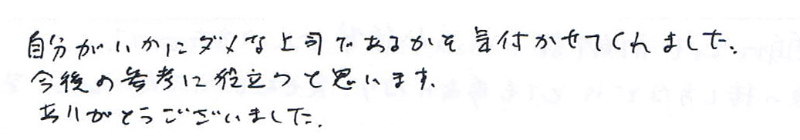 自分がいかにダメな上司であるかを気付かせてくれました。
今後の参考に役立つと思います。
ありがとうございました。